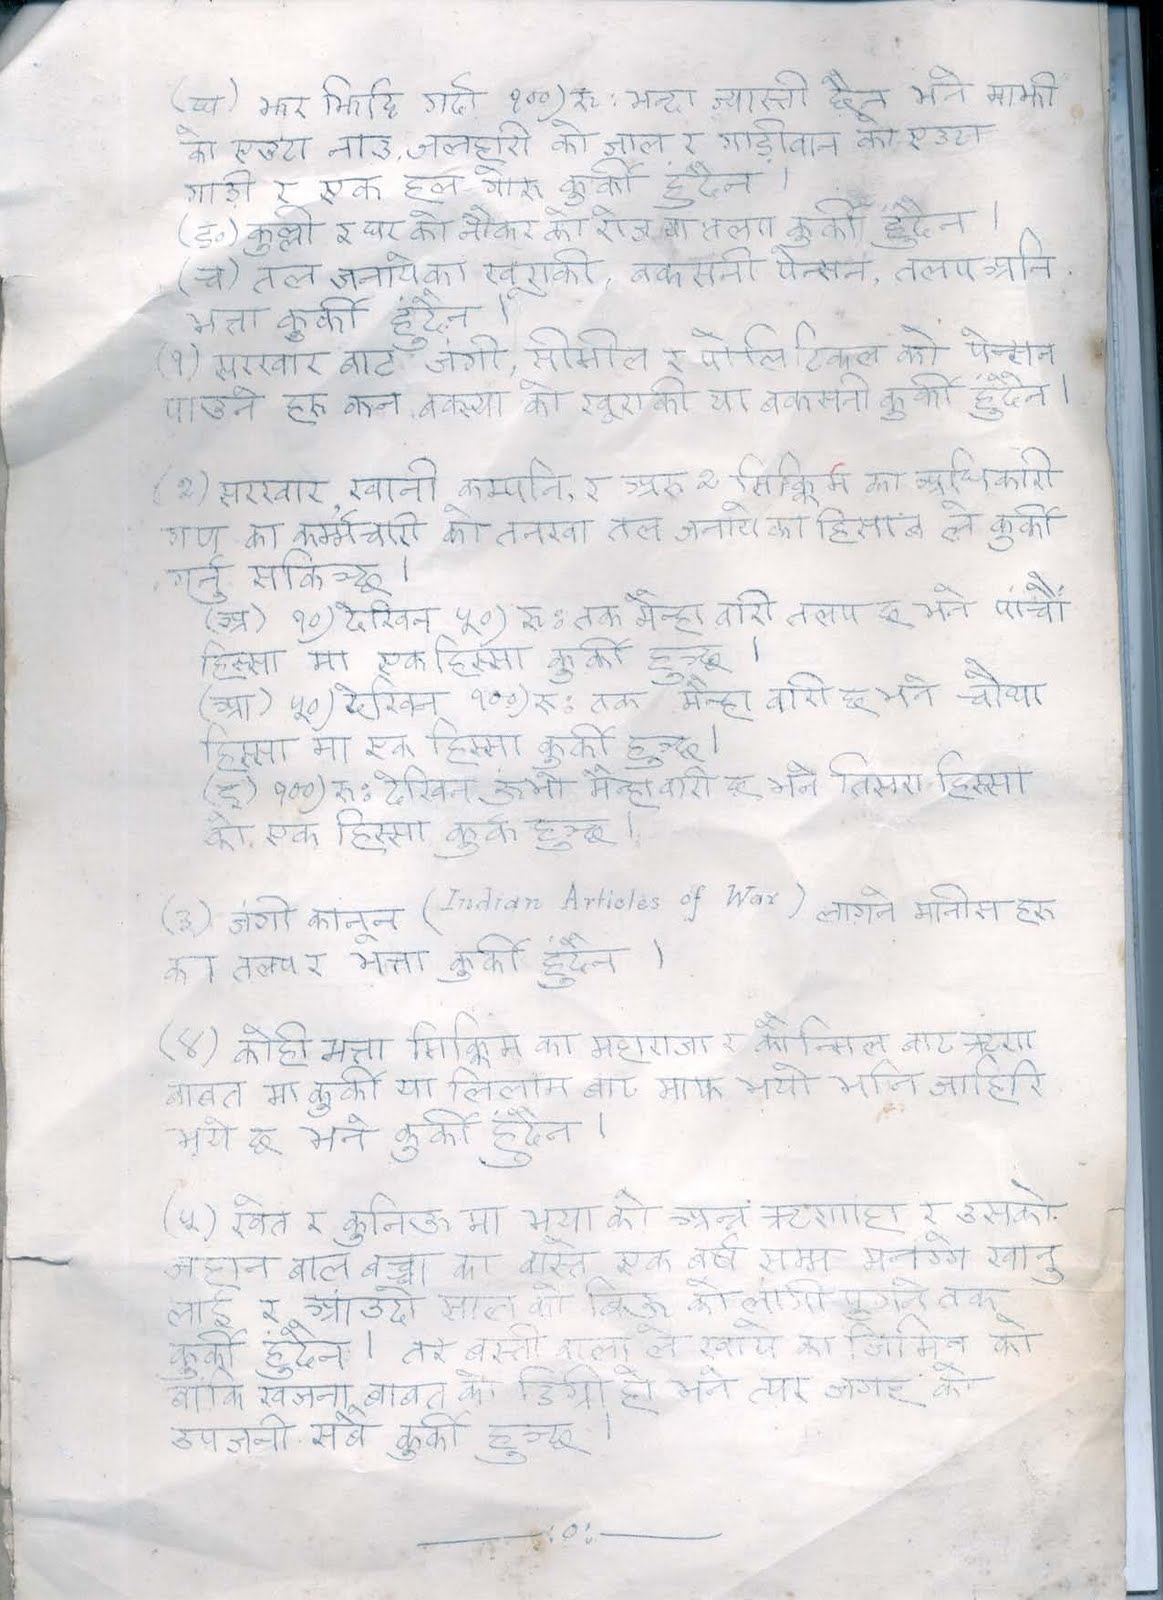 (घ) झर झिटि गर्दा १००) रु: भन्दा ज्यास्ती छैन भने माझी
को एउटा नाउ, जलहारी को जाल र गाडीवान को एउटा
गाडी र एक हल गोरु कुर्की हुंदैन ।
(ङ) कुल्ली र घर को नौकर को रोज या तलप कुर्की हुंदैन ।
(च) तल जनायेका खूराकी, बकसनी पेन्सन, तलप अनि
भत्ता कुर्की हुंदैन ।
(१) सरखार बाट जंगी, सीभील र पोलिटिकल को पेन्सन
पाउने हरु कन बकस्या को खूराकी या बकसनी कुर्की हुंदैन ।
(२) सरखार, खानी कम्पनि, र अरु २ सिक्किम का अधिकारी
गण का कर्म्मचारी को तनखा तल जनाये का हिसाब ले कुर्की
गर्नु सकिन्छ ।
(अ) १०) देखिन ५०) रु: तक मैन्हा वारी तलप छ भने पांचौं
हिस्सा मा एक हिस्सा कुर्की हुन्छ ।
(आ) ५०) देखिन १००) रु: तक मैन्हा वारी छ भने चौथा
हिस्सा मा एक हिस्सा कुर्की हुन्छ ।
(इ) १००) रु: देखिन ऊभो मैन्हा वारी छ भने तिसरा हिस्सा
को एक हिस्सा कुर्क हुन्छ ।
(३) जंगी कानून (Indian Articles of War) लाग्ने मानीस हरु
का तलप र भत्ता कुर्की हुंदैन ।
(४) कोही भत्ता सिक्किम का महाराजा र कौन्सिल बाट ऋण
बाबत मा कुर्की या लिलाम बाट माफ भयो भनि जाहिरि
भये छ भने कुर्की हुंदैन ।
(५) खेत र कुनिऊ मा भया को अन्न र उसको
जहान बाल बच्चा का वास्ते एक वर्ष सम्म मनग्गे खानु
लाई र आउंदो साल को बिऊ को लागी पुग्ने तक
कुर्की हुंदैन । तर बस्ती वाला ले खाये का जिमिन को
बांकि खजना बाबत को डिग्री हो भने त्यस जगह को
उपजनी सबै कुर्की हुन्छ ।
:०: